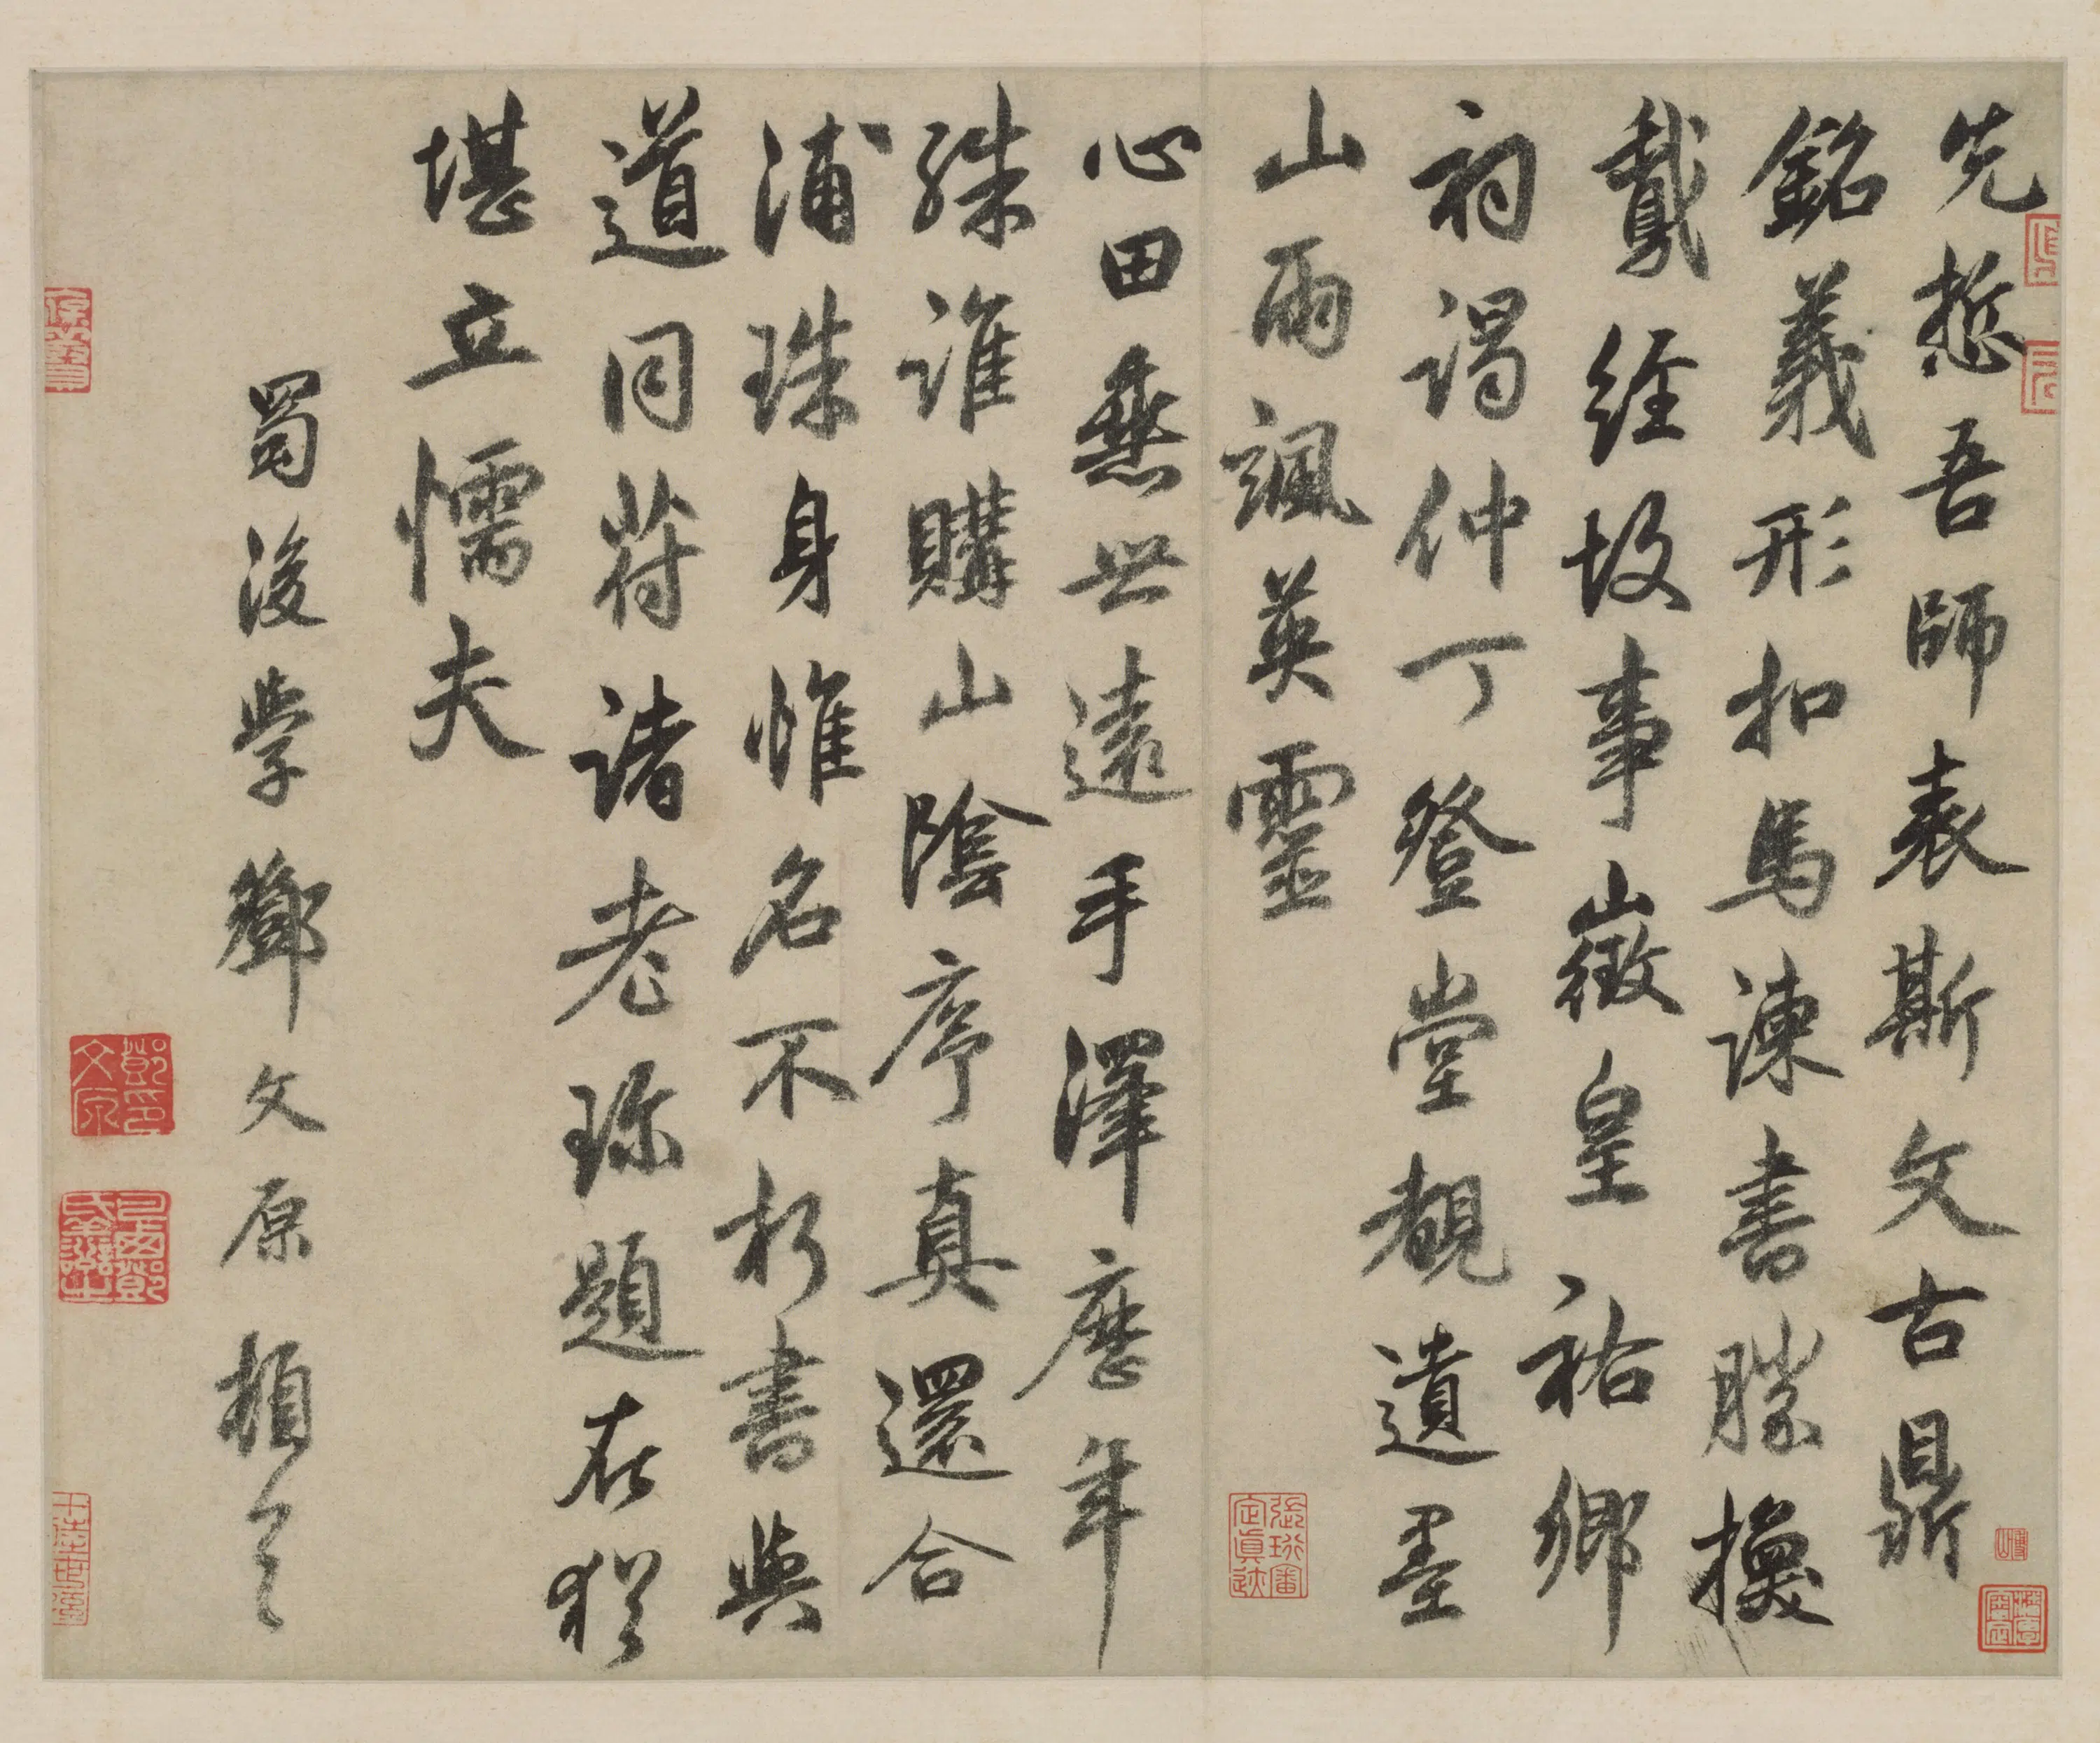 先悊吾師表斯文古鼎
銘義形扣馬諫書勝換
鵞經故事徵皇祐鄉
祠謁仲丁登堂覩遺墨
山雨颯英靈
心田垂世遠手澤歷年
殊誰購山陰序真還合
浦珠身惟名不朽書與
道同符諸老珎題在猶
堪立懦夫
蜀後學鄧文原頓首
鄧文原印
巴西鄧氏善之